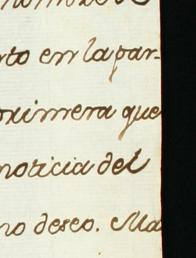 rto en la par-
oximera que
noticia del
no deseo. Ma